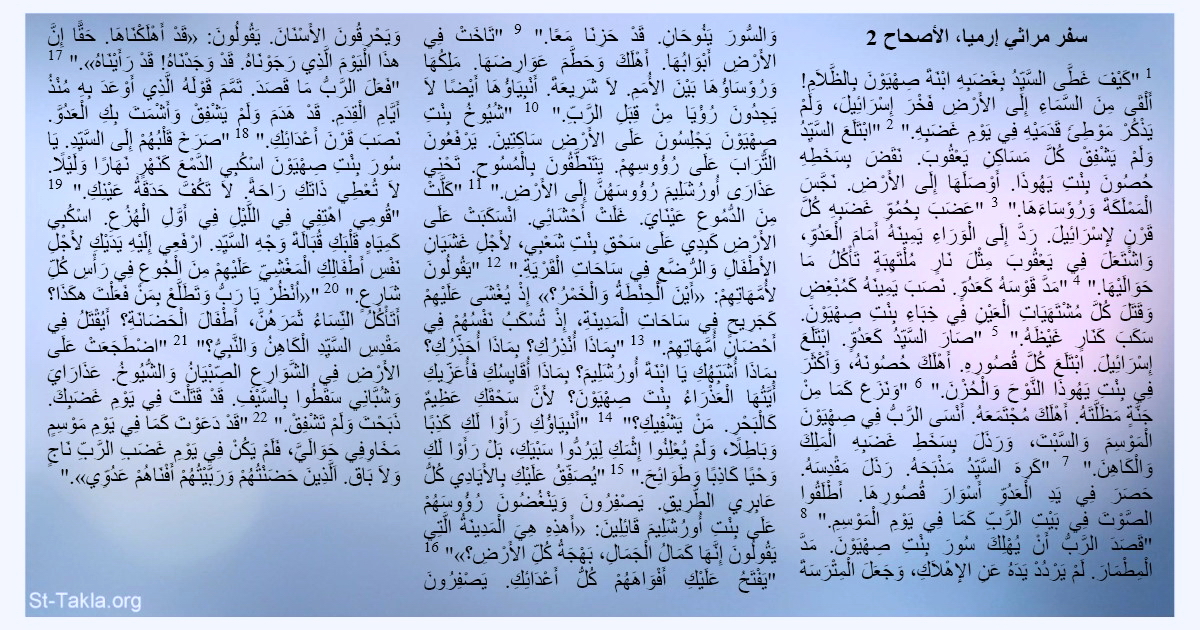 سفر مراثي إرميا، الأصحاح 2
1 "كَيْفَ غَطَّى السَّيِّدُ بِغَضَبِهِ ابْنَةَ صِهْيَوْنَ بِالظَّلاَمِ!
أَلْقَى مِنَ السَّمَاءِ إِلَى الأَرْضِ فَخْرَ إِسْرَائِيلَ، وَلَمْ
يَذْكُرْ مَوْطِئَ قَدَمَيْهِ فِي يَوْمِ غَضَبِهِ." 2 "ابْتَلَعَ السَّيِّدُ
وَلَمْ يَشْفِقْ كُلَّ مَسَاكِنِ يَعْقُوبَ. نَقَضَ بِسَخَطِهِ
حُصُونَ بِنْتِ يَهُوذَا. أَوْصَلَهَا إِلَى الأَرْضِ. نَجَّسَ
الْمَمْلَكَةَ وَرُؤَسَاءَهَا." 3 "عَضَبَ بِحُمُوِّ غَضَبِهِ كُلَّ
قَرْنٍ لإِسْرَائِيلَ. رَدَّ إِلَى الْوَرَاءِ يَمِينَهُ أَمَامَ الْعَدُوِّ،
وَاشْتَعَلَ فِي يَعْقُوبَ مِثْلَ نَارٍ مُلْتَهِبَةٍ تَأْكُلُ مَا
حَوَالَيْهَا." 4 "مَدَّ قَوْسَهُ كَعَدُوٍّ. نَصَبَ يَمِينَهُ كَمُبْغِضٍ
وَقَتَلَ كُلَّ مُشْتَهَيَاتِ الْعَيْنِ فِي خِبَاءِ بِنْتِ صِهْيَوْنَ.
سَكَبَ كَنَارٍ غَيْظَهُ." 5 "صَارَ السَّيِّدُ كَعَدُوٍّ. ابْتَلَعَ
إِسْرَائِيلَ. ابْتَلَعَ كُلَّ قُصُورِهِ. أَهْلَكَ حُصُونَهُ، وَأَكْثَرَ
فِي بِنْتِ يَهُوذَا النَّوْحَ وَالْحُزْنَ." 6 "وَنَزَعَ كَمَا مِنْ
جَنَّةٍ مَظَلَّتَهُ. أَهْلَكَ مُجْتَمَعَهُ. أَنْسَى الرَّبُّ فِي صِهْيَوْنَ
الْمَوْسِمَ وَالسَّبْتَ، وَرَذَلَ بِسَخَطِ غَضَبِهِ الْمَلِكَ
وَالْكَاهِنَ." 7 "كَرِهَ السَّيِّدُ مَذْبَحَهُ. رَذَلَ مَقْدِسَهُ.
حَصَرَ فِي يَدِ الْعَدُوِّ أَسْوَارَ قُصُورِهَا. أَطْلَقُوا
الصَّوْتَ فِي بَيْتِ الرَّبِّ كَمَا فِي يَوْمِ الْمَوْسِمِ." 8
"قَصَدَ الرَّبُّ أَنْ يُهْلِكَ سُورَ بِنْتِ صِهْيَوْنَ. مَدَّ
الْمِطْمَارَ. لَمْ يَرْدُدْ يَدَهُ عَنِ الإِهْلاَكِ، وَجَعَلَ الْمِتْرَسَةَ
وَالسُّورَ يَنُوحَانِ. قَدْ حَزِنَا مَعًا." 9 "تَاخَتْ فِي
الأَرْضِ أَبْوَابُهَا. أَهْلَكَ وَحَطَّمَ عَوَارِضَهَا. مَلِكُهَا
وَرُؤَسَاؤُهَا بَيْنَ الأُمَمِ. لاَ شَرِيعَةَ. أَنْبِيَاؤُهَا أَيْضًا لاَ
يَجِدُونَ رُؤْيَا مِنْ قِبَلِ الرَّبِّ." 10 "شُيُوخُ بِنْتِ
صِهْيَوْنَ يَجْلِسُونَ عَلَى الأَرْضِ سَاكِتِينَ. يَرْفَعُونَ
التُّرَابَ عَلَى رُؤُوسِهِمْ. يَتَنَطَّقُونَ بِالْمُسُوحِ. تَحْنِي
عَذَارَى أُورُشَلِيمَ رُؤُوسَهُنَّ إِلَى الأَرْضِ." 11 "كَلَّتْ
مِنَ الدُّمُوعِ عَيْنَايَ. غَلَتْ أَحْشَائِي. انْسَكَبَتْ عَلَى
الأَرْضِ كَبِدِي عَلَى سَحْقِ بِنْتِ شَعْبِي، لأَجْلِ غَشَيَانِ
الأَطْفَالِ وَالرُّضَّعِ فِي سَاحَاتِ الْقَرْيَةِ." 12 "يَقُولُونَ
لأُمَّهَاتِهِمْ: «أَيْنَ الْحِنْطَةُ وَالْخَمْرُ؟» إِذْ يُغْشَى عَلَيْهِمْ
كَجَرِيحٍ فِي سَاحَاتِ الْمَدِينَةِ، إِذْ تُسْكَبُ نَفْسُهُمْ فِي
أَحْضَانِ أُمَّهَاتِهِمْ." 13 "بِمَاذَا أُنْذِرُكِ؟ بِمَاذَا أُحَذِّرُكِ؟
بِمَاذَا أُشَبِّهُكِ يَا ابْنَةَ أُورُشَلِيمَ؟ بِمَاذَا أُقَايِسُكِ فَأُعَزِّيكِ
أَيَّتُهَا الْعَذْرَاءُ بِنْتَ صِهْيَوْنَ؟ لأَنَّ سَحْقَكِ عَظِيمٌ
كَالْبَحْرِ. مَنْ يَشْفِيكِ؟" 14 "أَنْبِيَاؤُكِ رَأَوْا لَكِ كَذِبًا
وَبَاطِلًا، وَلَمْ يُعْلِنُوا إِثْمَكِ لِيَرُدُّوا سَبْيَكِ، بَلْ رَأَوْا لَكِ
وَحْيًا كَاذِبًا وَطَوَائِحَ." 15 "يُصَفِّقُ عَلَيْكِ بِالأَيَادِي كُلُّ
عَابِرِي الطَّرِيقِ. يَصْفِرُونَ وَيَنْغُضُونَ رُؤُوسَهُمْ
عَلَى بِنْتِ أُورُشَلِيمَ قَائِلِينَ: «أَهذِهِ هِيَ الْمَدِينَةُ الَّتِي
يَقُولُونَ إِنَّهَا كَمَالُ الْجَمَالِ، بَهْجَةُ كُلِّ الأَرْضِ؟»" 16
"يَفْتَحُ عَلَيْكِ أَفْوَاهَهُمْ كُلُّ أَعْدَائِكِ. يَصْفِرُونَ
وَيَحْرِقُونَ الأَسْنَانَ. يَقُولُونَ: «قَدْ أَهْلَكْنَاهَا. حَقًّا إِنَّ
هذَا الْيَوْمَ الَّذِي رَجَوْنَاهُ. قَدْ وَجَدْنَاهُ! قَدْ رَأَيْنَاهُ»." 17
"فَعَلَ الرَّبُّ مَا قَصَدَ. تَمَّمَ قَوْلَهُ الَّذِي أَوْعَدَ بِهِ مُنْذُ
أَيَّامِ الْقِدَمِ. قَدْ هَدَمَ وَلَمْ يَشْفِقْ وَأَشْمَتَ بِكِ الْعَدُوَّ.
نَصَبَ قَرْنَ أَعْدَائِكِ." 18 "صَرَخَ قَلْبُهُمْ إِلَى السَّيِّدِ. يَا
سُورَ بِنْتِ صِهْيَوْنَ اسْكُبِي الدَّمْعَ كَنَهْرٍ نَهَارًا وَلَيْلًا.
لاَ تُعْطِي ذَاتَكِ رَاحَةً. لاَ تَكُفَّ حَدَقَةُ عَيْنِكِ." 19
"قُومِي اهْتِفِي فِي اللَّيْلِ فِي أَوَّلِ الْهُزُعِ. اسْكُبِي
كَمِيَاهٍ قَلْبَكِ قُبَالَةَ وَجْهِ السَّيِّدِ. ارْفَعِي إِلَيْهِ يَدَيْكِ لأَجْلِ
نَفْسِ أَطْفَالِكِ الْمَغْشِيِّ عَلَيْهِمْ مِنَ الْجُوعِ فِي رَأْسِ كُلِّ
شَارِعٍ." 20 "«اُنْظُرْ يَا رَبُّ وَتَطَلَّعْ بِمَنْ فَعَلْتَ هكَذَا؟
أَتَأْكُلُ النِّسَاءُ ثَمَرَهُنَّ، أَطْفَالَ الْحَضَانَةِ؟ أَيُقْتَلُ فِي
مَقْدِسِ السَّيِّدِ الْكَاهِنُ وَالنَّبِيُّ؟" 21 "اضْطَجَعَتْ عَلَى
الأَرْضِ فِي الشَّوَارِعِ الصِّبْيَانُ وَالشُّيُوخُ. عَذَارَايَ
وَشُبَّانِي سَقَطُوا بِالسَّيْفِ. قَدْ قَتَلْتَ فِي يَوْمِ غَضَبِكَ.
ذَبَحْتَ وَلَمْ تَشْفِقْ." 22 "قَدْ دَعَوْتَ كَمَا فِي يَوْمِ مَوْسِمٍ
مَخَاوِفِي حَوَالَيَّ، فَلَمْ يَكُنْ فِي يَوْمِ غَضَبِ الرَّبِّ نَاجٍ
وَلاَ بَاق. اَلَّذِينَ حَضَنْتُهُمْ وَرَبَّيْتُهُمْ أَفْنَاهُمْ عَدُوِّي»."
St-Takla.org